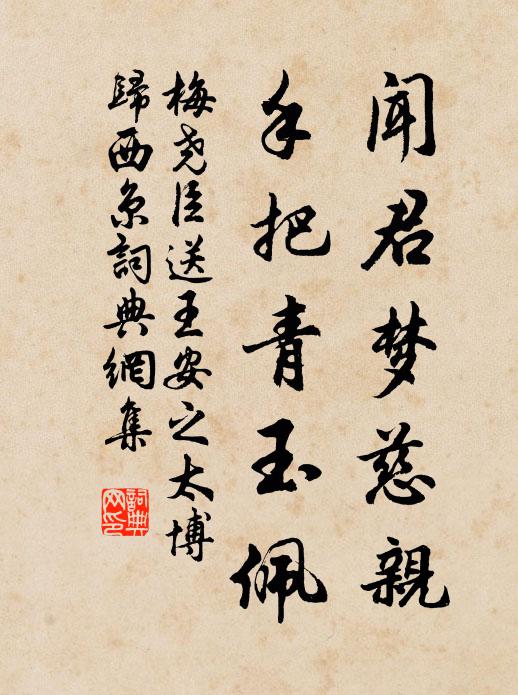 闻君梦慈親
手把青玉佩
梅尧臣送王安之太博
歸西京詞典網集
詞典网印